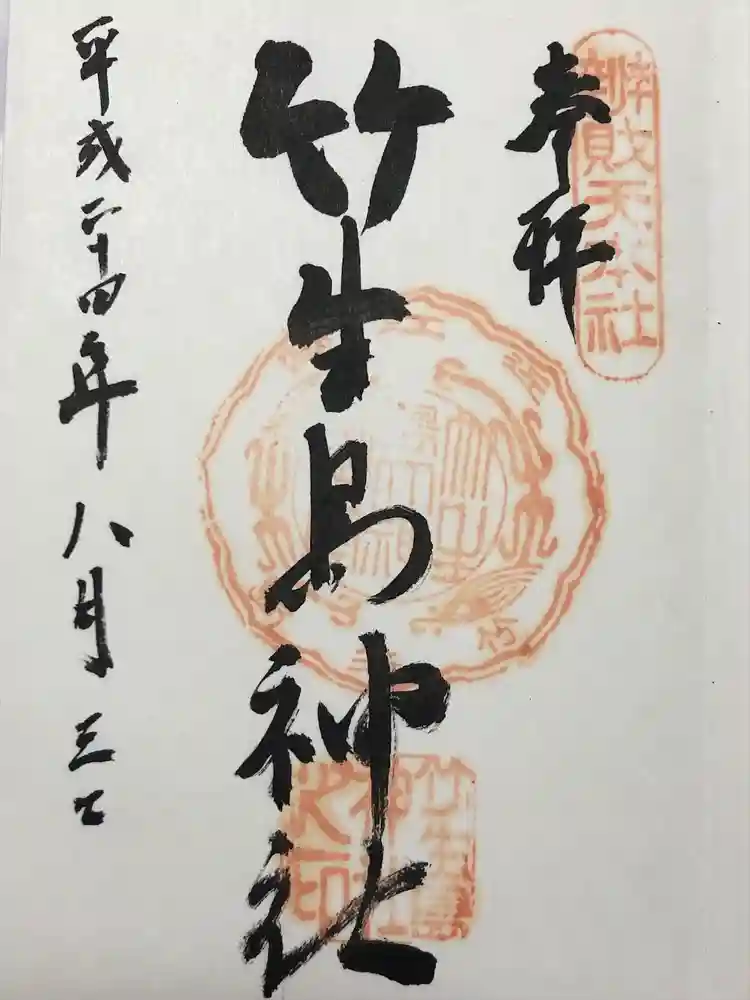 奉拝
辨財天本社
竹生島神社
竹生島
神社
之印
平成二十四年八月三日